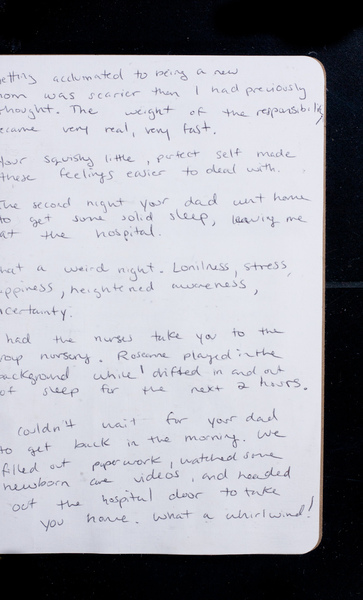 etting acclimated to being a new
mom was scarier than I had previously
thought. The weight of the responsibility
ecame very real, very fast.
Your squishy little, perfect self made
these feelings easier to deal with.
The second night your dad went home
to get some solid sleep, leaving me
at the hospital.
hat a weird night. Lonliness, stress,
ppiness, heightened awareness,
ncertainty.
had the nurses take you to the
roup nursery. Roseanne played in the
background while I drifted in and out
of sleep for the next 2 hours.
couldn't wait for your dad
to get back in the morning. We
filled out paperwork, watched some
newborn care videos, and headed
out the hospital door to take
you home. What a whirlwind!